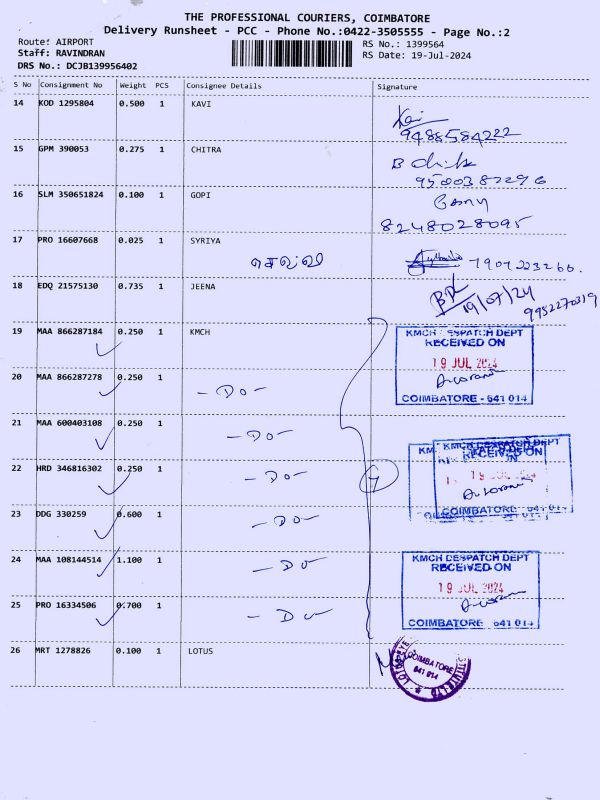 THE PROFESSIONAL COURIERS, COIMBATORE
Delivery Runsheet - PCC - Phone No.:0422-3505555 - Page No.:2
Route: AIRPORT
RS No.: 1399564
Staff: RAVINDRAN
RS Date: 19-Jul-2024
DRS No.: DCJB139956402
S No Consignment No Weight PCS Consignee Details Signature
14 KOD 1295804 0.500 1 KAVI
9488584222
15 GPM 390053 0.275 1 CHITRA
B
9500382296
16 SLM 350651824 0.100 1 GOPI
8248028095
17 PRO 16607668 0.025 1 SYRIYA
7907223266.
18 EDQ 21575130 0.735 1 JEENA
19/07/24
9952270319
19 MAA 866287184 0.250 1 KMCH
KMCH DESPATCH DEPT
RECEIVED ON
19 JUL 2024
COIMBATORE - 641 014
20 MAA 866287278 0.250 1 - Do -
21 MAA 600403108 0.250 1 - Do -
KMCH DESPATCH DEPT
RECEIVED ON
22 HRD 346816302 0.250 1 - Do - 7
COIMBATORE - 641 014
23 DDG 330259 0.600 1 - Do -
24 MAA 108144514 1.100 1 - Do -
KMCH DESPATCH DEPT
RECEIVED ON
19 JUL 2024
25 PRO 16334506 0.700 1 - Do -
COIMBATORE - 641 014
26 MRT 1278826 0.100 1 LOTUS
COIMBATORE
641 014